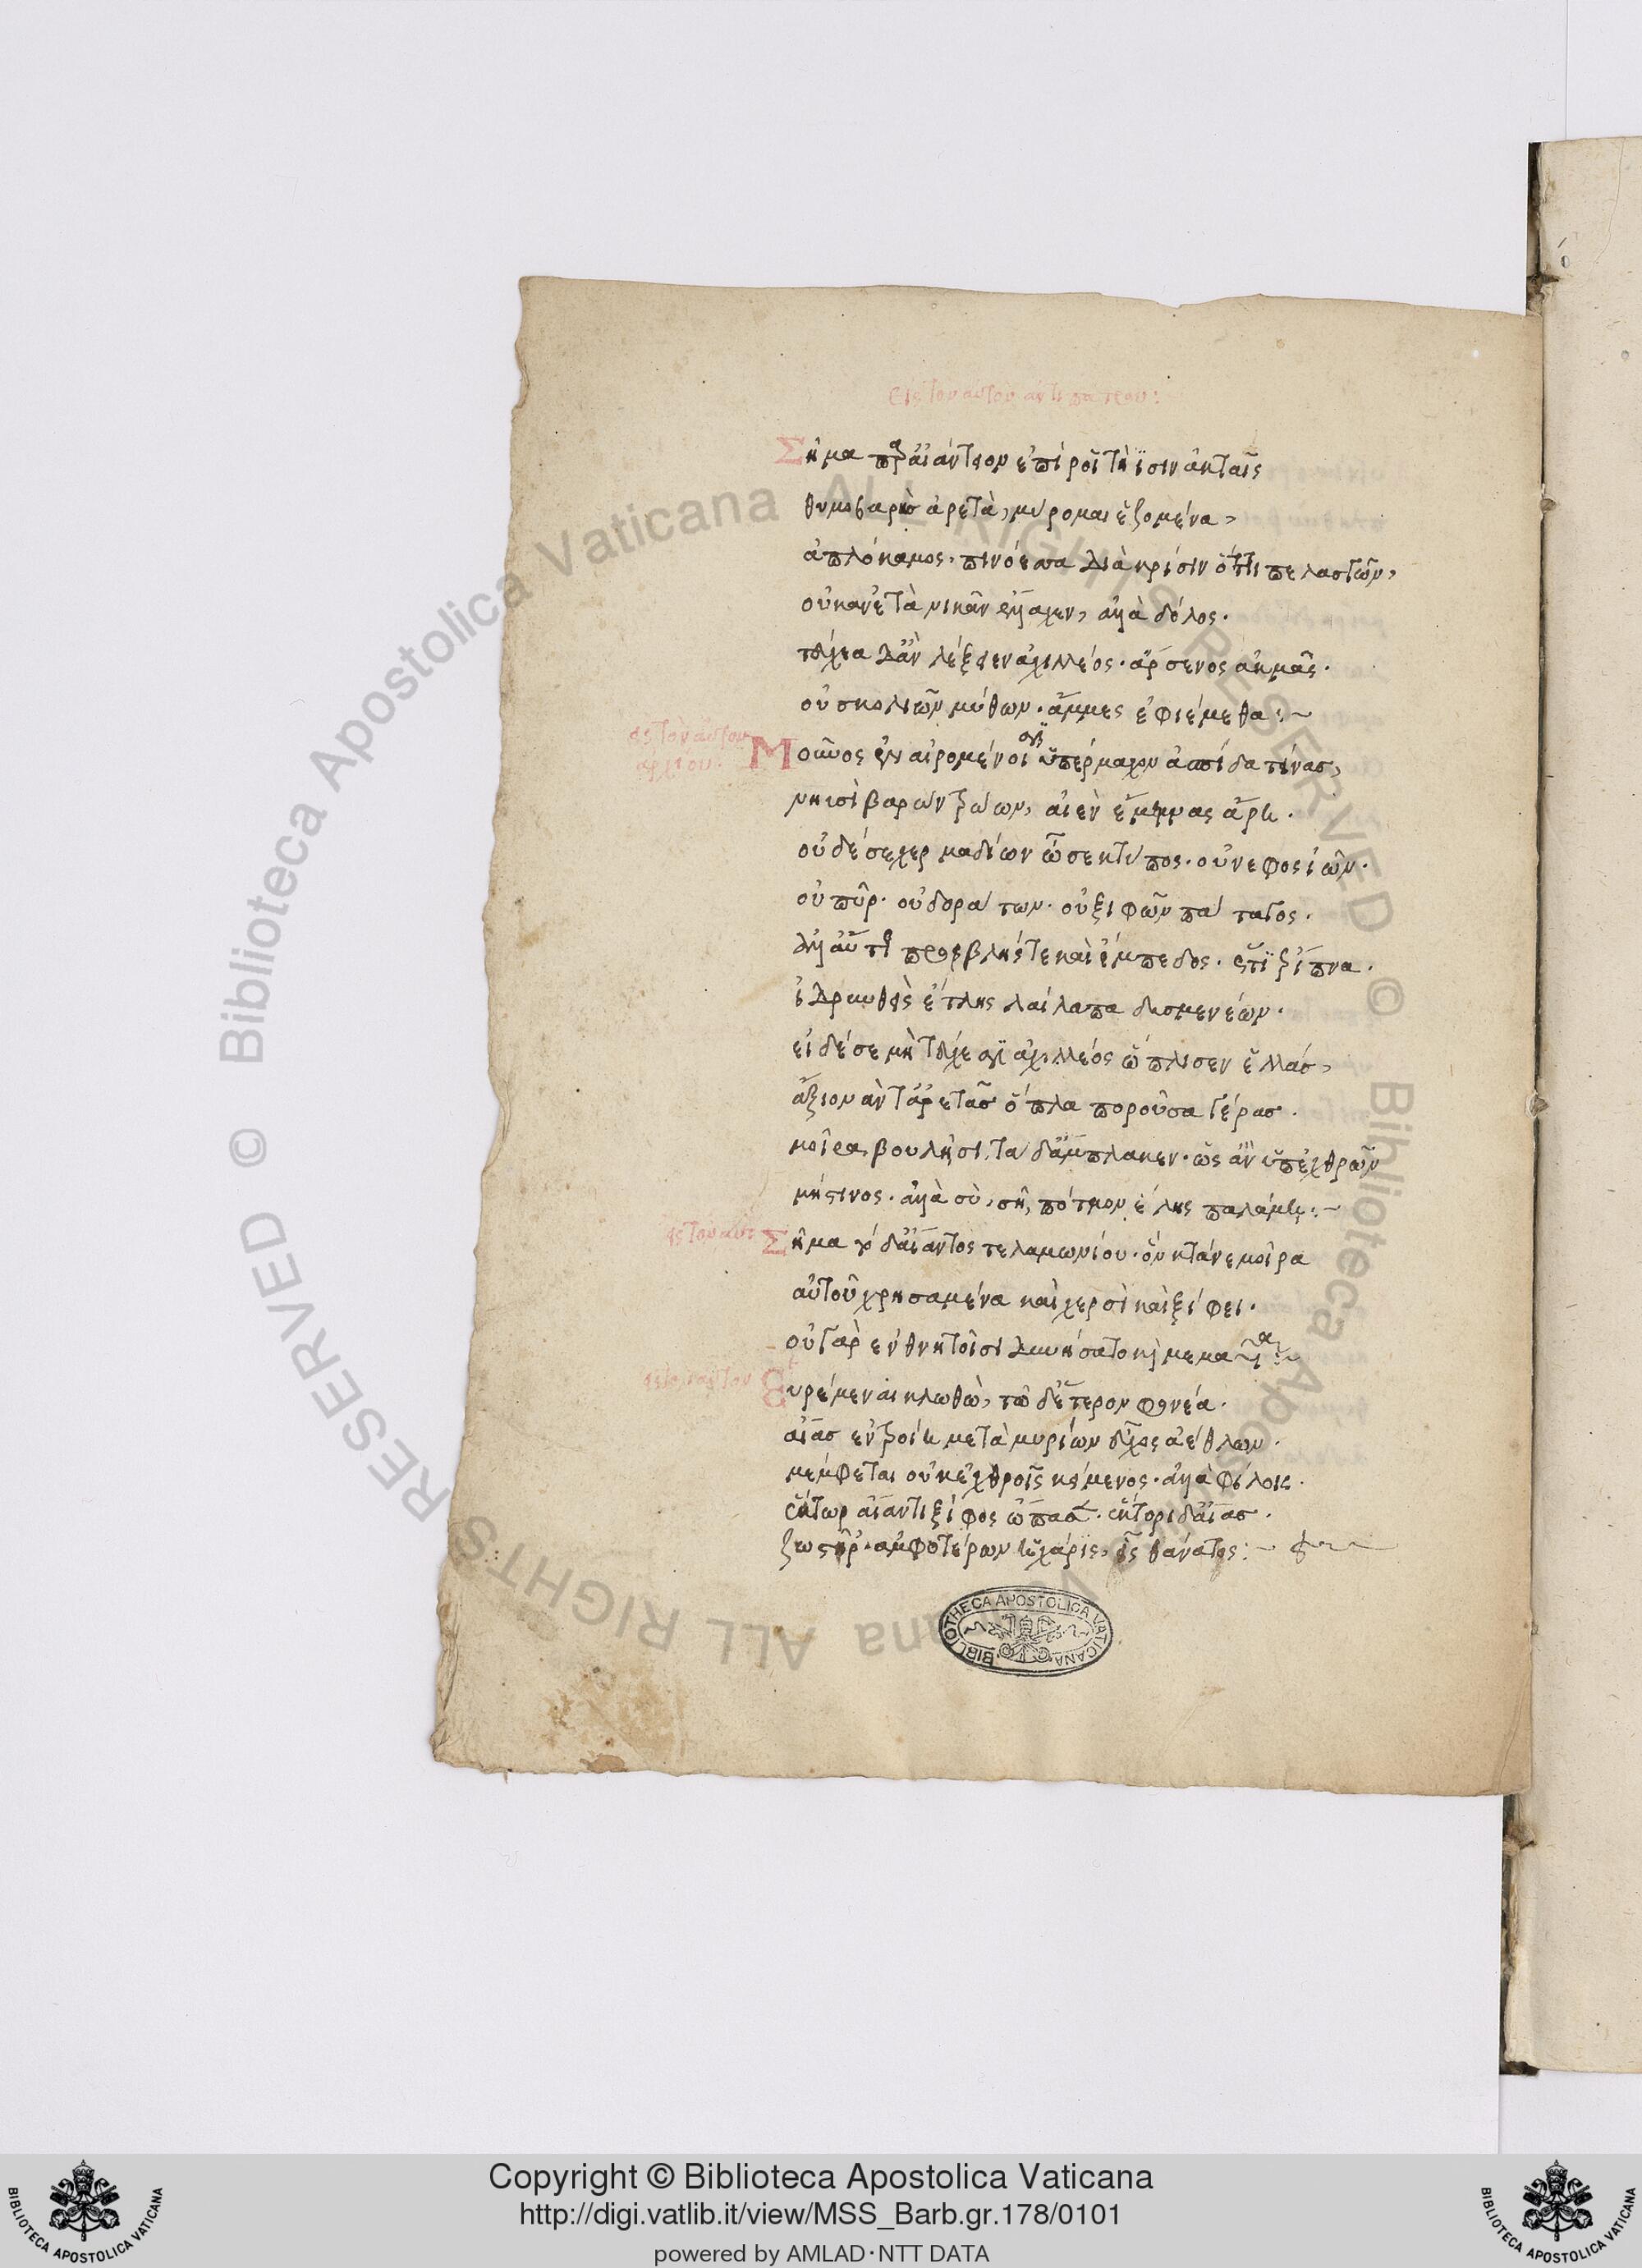 εἰς τὸν αὐτὸν ἀντιπάτρου:
Σῆμα παρ' αἰάντειον ἐπὶ ῥοιτηΐσιν ἀκταῖς
θυμοβαρὴς ἀρετὰ, μύρομαι ἑζομένα,
ἀπλόκαμος, πινόεσσα διὰ κρίσιν ὅττι πελασγῶν,
οὐκ ἀρετὰ νικᾶν ἔλλαχεν, ἀλλὰ δόλος.
τεύχεα δ' ἂν λέξειεν ἀχιλλέος· ἄρσενος ἀκμᾶς.
οὐ σκολιῶν μύθων· ἄμμες ἐφιέμεθα:~
εἰς τὸν αὐτὸν
ἀρχίου:
Μοῦνος ἐναιρομένοισιν ὑπέρμαχον ἀσπίδα τείνας,
νηυσὶ βαρὺν τρώων, αἶεν ἔμεινας ἄρη.
οὐδέ σε χερμαδίων ὦσε κτύπος. οὐ νέφος ἰῶν.
οὐ πῦρ. οὐ δοράτων. οὐ ξιφῶν πάταγος.
ἀλλ' αὔτως προβλής τε καὶ ἔμπεδος. ὥς τις ἐρίπνα.
ἱδρυθεὶς ἔτλης λαίλαπα δυσμενέων.
εἰ δέ σε μὴ τεύχεσιν ἀχιλλέος ὥπλισεν ἑλλάς,
ἄξιον ἀντ' ἀρετᾶς ὅπλα ποροῦσα γέρας.
μοίρας βουλῇσι, τάδ' ἄμπλακεν. ὡς ἂν ὑπ' ἐχθρῶν
μή τινος. ἀλλὰ σὺ σῇ πότμον ἕλῃς παλάμῃ:~
εἰς τὸν αὐτ
Σῆμα τόδ' αἴαντος τελαμωνίου. ὃν κτάνε μοῖρα
αὐτοῦ χρησαμένα καὶ χερσὶ καὶ ξίφει.
οὐ γὰρ ἐν θνητοῖσι δυνήσατο καὶ μεμαυῖα:~
εἰς τὸν αὐτὸν
Εὑρέμεναι κλωθὼ, τῶδ' ἕτερον φονέα.
αἴας ἐν τροίη μετὰ μυρίων εὖχος ἀέθλων.
μέμφεται οὐκ ἐχθροῖς κείμενος. ἀλλὰ φίλοις.
ἕκτωρ αἴαντι ξίφος ὤπασεν. ἕκτορι δ' αἴας.
ζωστῆρ'. ἀμφοτέρων ἡ χάρις, εἷς θάνατος:~
BIBLIOTHECA APOSTOLICA VATICANA
© Biblioteca Apostolica Vaticana ALL RIGHTS RESERVED © Biblioteca Apostolica Vaticana ALL RIGHTS RESERVED
Copyright © Biblioteca Apostolica Vaticana
http://digi.vatlib.it/view/MSS_Barb.gr.178/0101
powered by AMLAD·NTT DATA
BIBLIOTECA APOSTOLICA VATICANA
BIBLIOTECA APOSTOLICA VATICANA